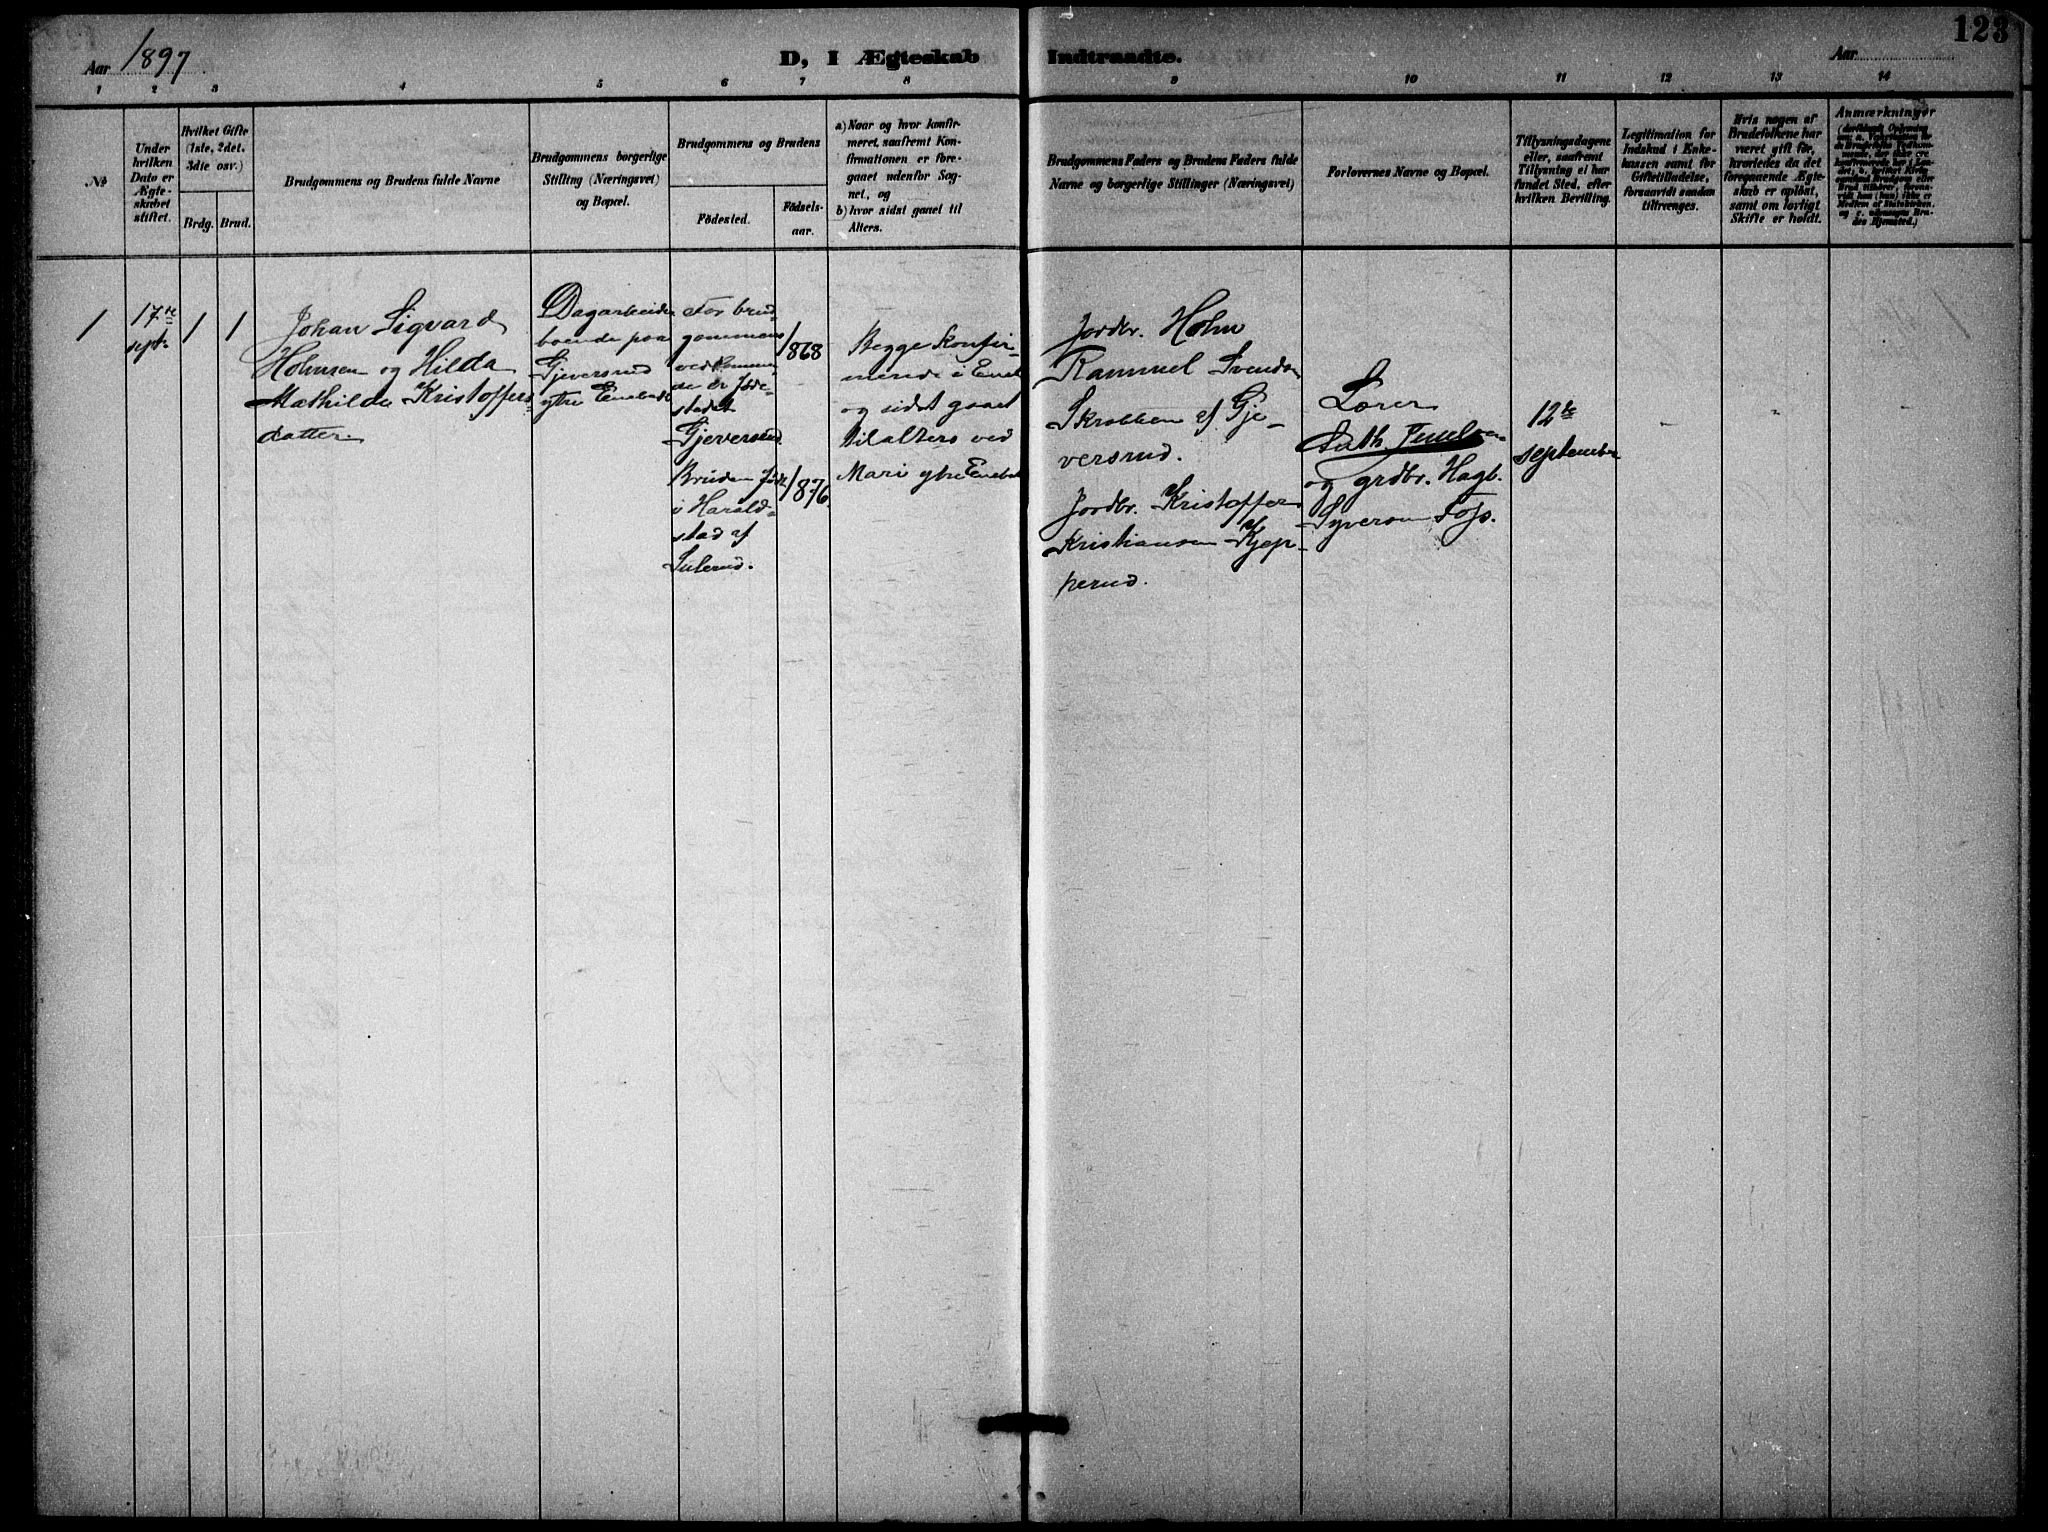 123
Aar 1897
D, I Ægteskab Indtraadte.
Aar
1 2 3 4 5 6 7 8 9 10 11 12 13 14
No
Under
hvilken
Dato er
Ægte-
skabet
stiftet.
Hvilket Gifte
(1ste, 2det,
3die osv.)
Brdg. Brud.
Brudgommens og Brudens fulde Navne
Brudgommens borgerlige
Stilling (Næringsvei)
og Bopæl.
Brudgommens og Brudens
Fødested.
Fødsels-
aar.
a) Naar og hvor konfir-
meret, saafremt Kon-
firmationen er fore-
gaaet udenfor Sog-
net, og
b) hvor sidst gaaet til
Alters.
Brudgommens Faders og Brudens Faders fulde
Navne og borgerlige Stillinger (Næringsvei)
Forlovernes Navne og Bopæl.
Tillysningsdagene
eller, saafremt
Tillysning ei har
fundet Sted, efter
hvilken Bevilling.
Legitimation for
Indskud i Enke-
kassen samt for
Giftetilladelse,
forsaavidt saadan
tiltrænges.
Hvis nogen af
Brudefolkene har
været gift før,
hvorledes da det
foregaaende Ægte-
skab er opløst,
samt om lovligt
Skifte er holdt.
Anmærkninger
1
17de
sept.
1
1
Johan Sigvard
Holmsen og Hilda
Mathilde Kristoffers-
datter.
Dagarbeider
boende paa
Gjeversrud
ytre Enebak
For brud
gommens
vedkommen
de er føde-
stedet
Gjeversrud
Bruden født
i Harald-
stad af
Sulerud.
1868
1876.
Begge konfir-
merede i Eneb
og sidst gaaet
til alters ved
Mari ytre Enebak
Jordbr. Holm
Rammel Svends
Skrobben af Gje-
versrud.
Jordbr. Kristoffer
Kristiansen Kjep-
perud.
Lærer
og grdbr. Hagb.
Syversen
12te
september